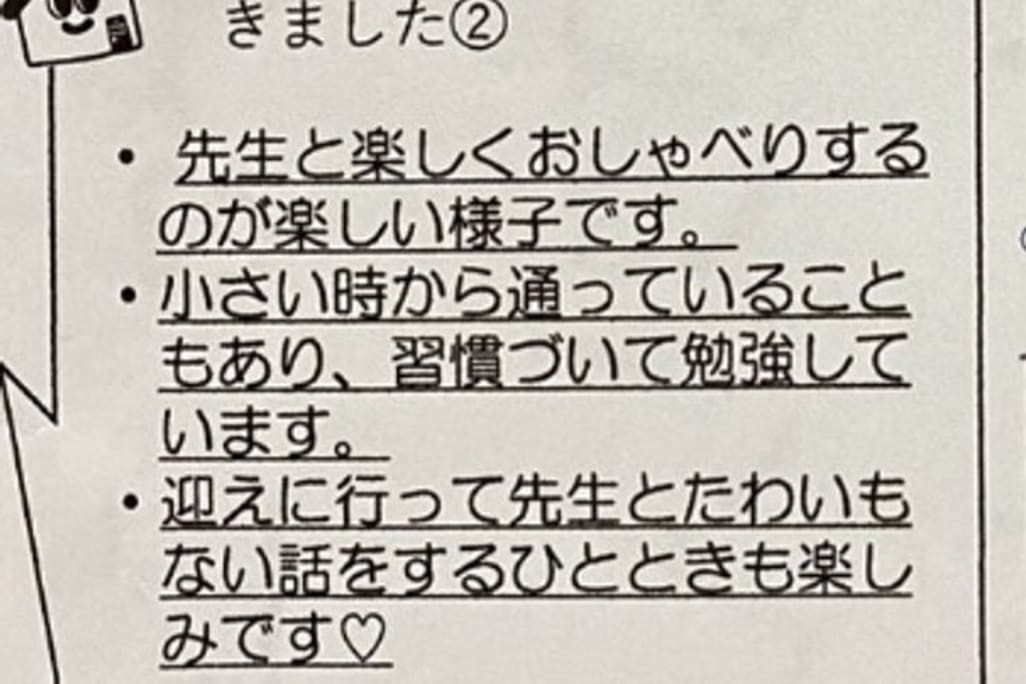 きました②
・先生と楽しくおしゃべりする
のが楽しい様子です。
・小さい時から通っていること
もあり、習慣づいて勉強して
います。
・迎えに行って先生とたわいも
ない話をするひとときも楽し
みです♡